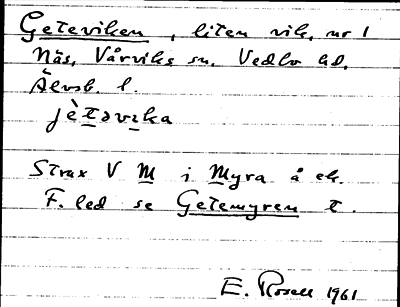 Geteviken, liten vik, nr 1
Näs, Vårviks sn. Vedbo hd,
Älvsb. l.
jè̀təvɪka
Strax V M i Myra å ek.
F. led se Getemyren t.
E. Rosell 1961